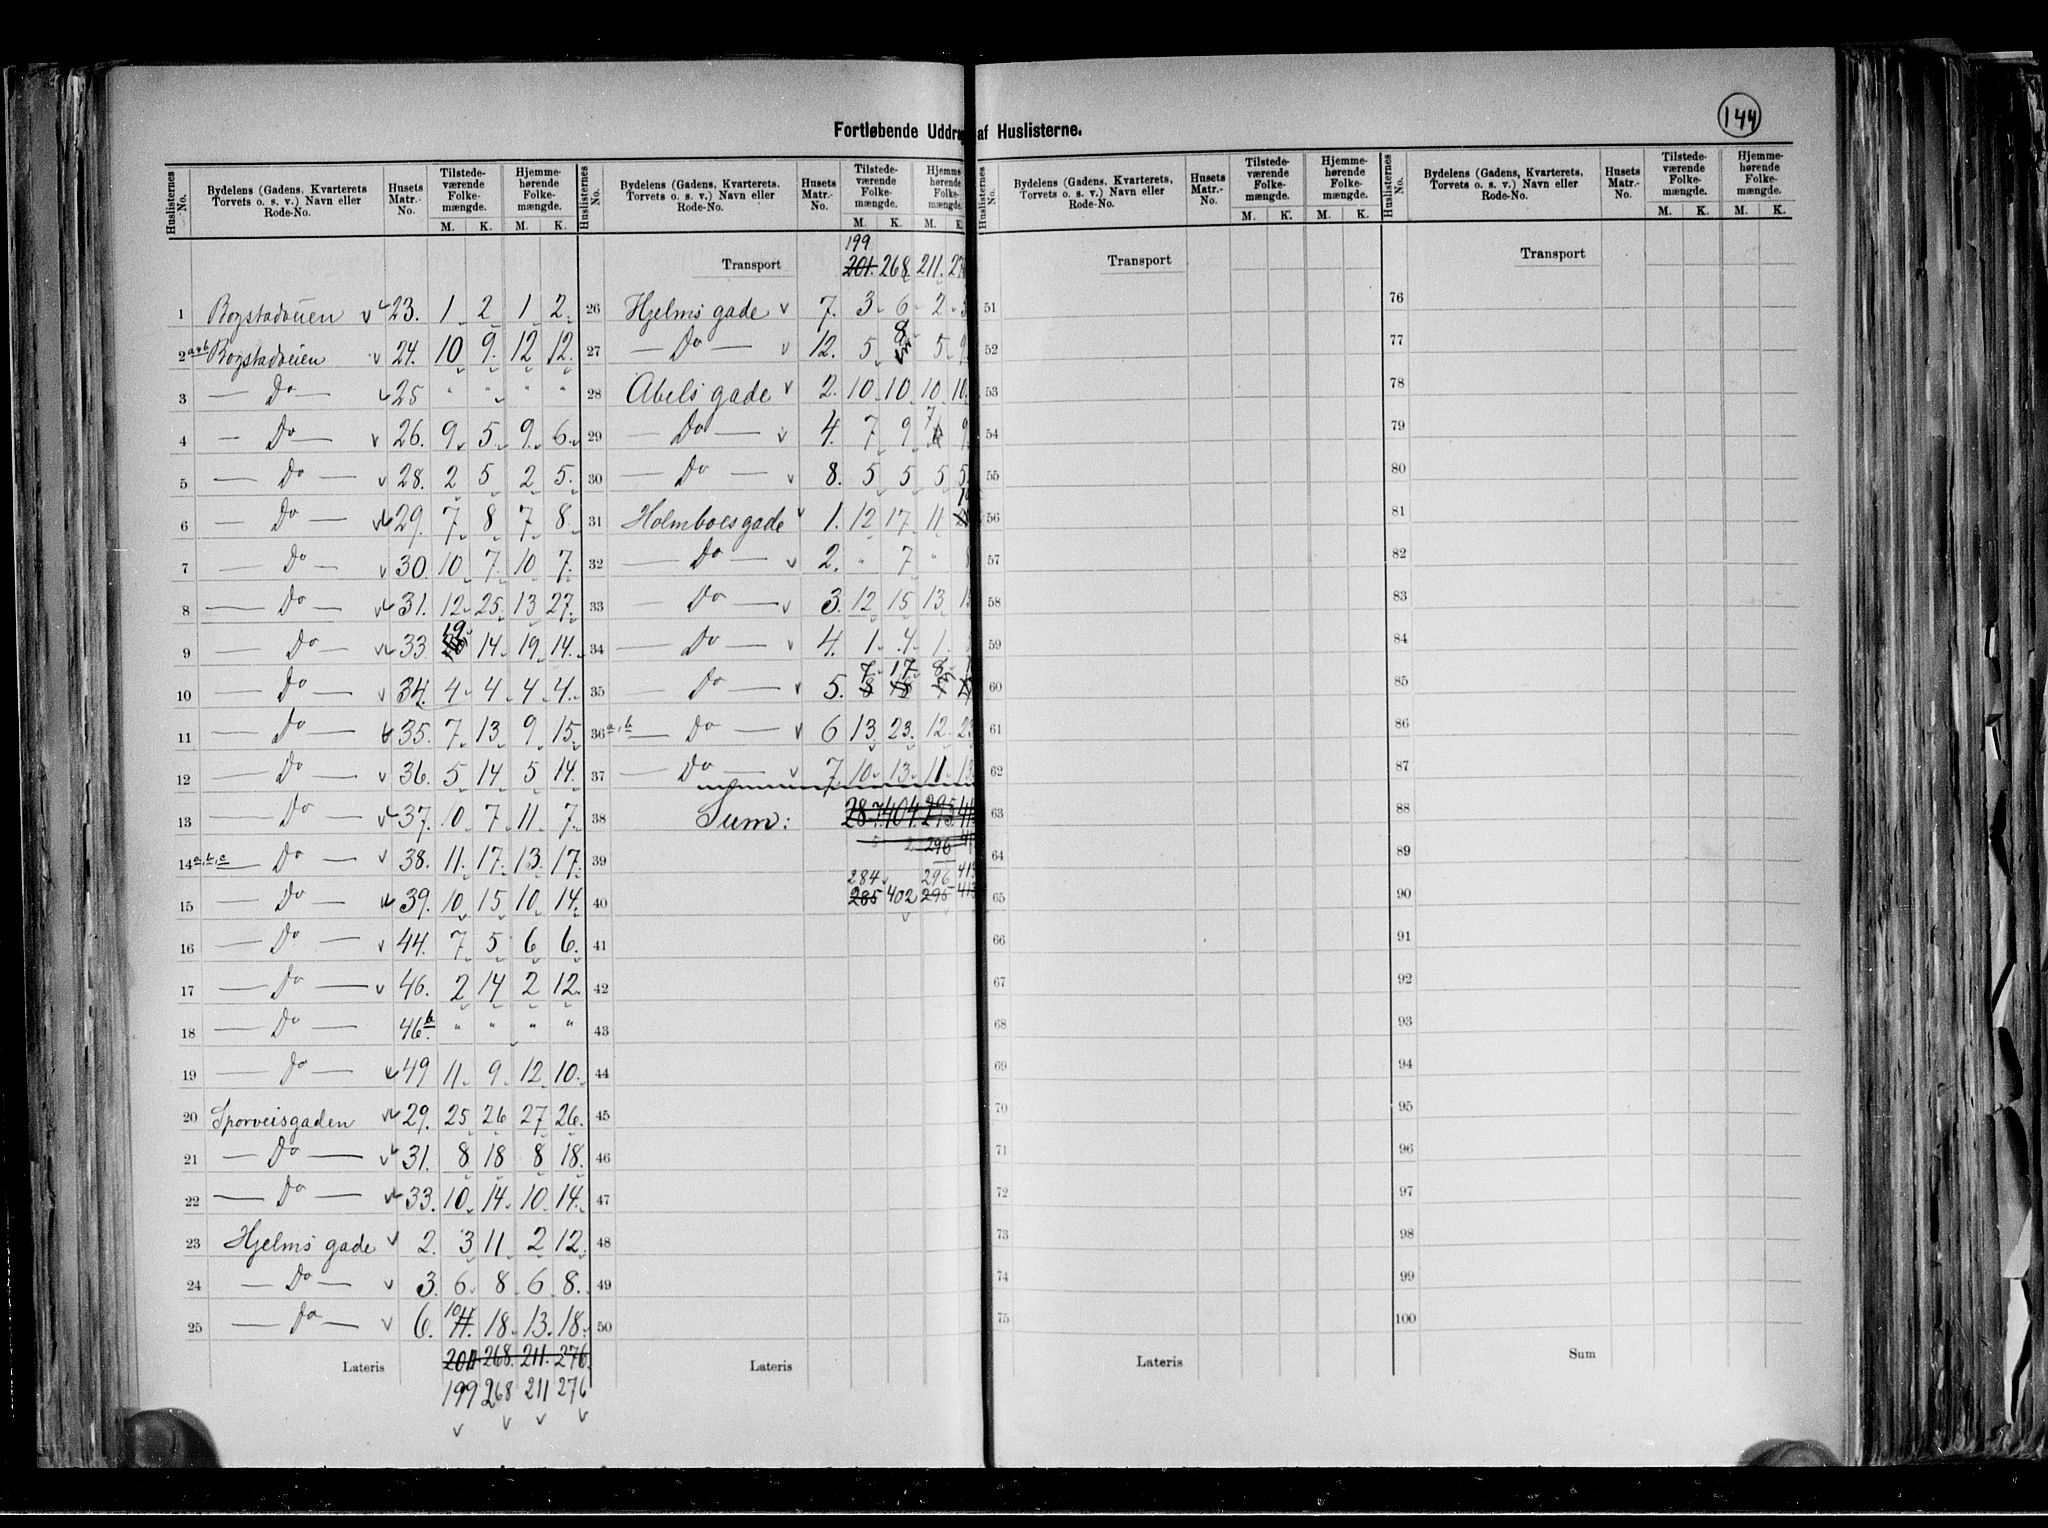 144
Fortløbende Uddrag af Huslisterne.
Huslisternes No. Bydelens (Gadens, Kvarterets Torvets o. s. v.) Navn eller Rode-No. Husets Matr.-No. Tilstedeværende Folkemængde. M. K. Hjemmehørende Folkemængde. M. K.
1 Bogstadveien 23. 1 2 1 2.
2 a+b Bogstadveien 24. 10 9. 12 12.
3 — Do — 25 " " " "
4 — Do — 26. 9 5. 9. 6.
5 — Do — 28. 2 5 2 5.
6 — Do — 29. 7 8 7 8.
7 — Do — 30. 10 7. 10 7.
8 — Do — 31. 12 25. 13 27.
9 — Do — 33. 19 14 19 14.
10 — Do — 34. 4 4 4 4.
11 — Do — 35. 7 13 9 15.
12 — Do — 36. 5 14 5 14.
13 — Do — 37. 10 7 11 7.
14 a,b,c — Do — 38. 11. 17. 13. 17.
15 — Do — 39. 10 15 10 14.
16 — Do — 44. 7 5 6 6.
17 — Do — 46. 2 14 2 12.
18 — Do — 46b " " " "
19 — Do — 49 11 9 12 10.
20 Sporveisgaden 29. 25 26 27 26.
21 — Do — 31. 8 18 8 18.
22 — Do — 33. 10 14. 10. 14.
23 Hjelms gade 2. 3 11 2 12.
24 — Do — 3. 6 8 6 8.
25 — Do — 6. 10 11. 18 13. 18.
Lateris 201 268. 211. 276.
199 268 211 276
Huslisternes No. Bydelens (Gadens, Kvarterets, Torvets o. s. v.) Navn eller Rode-No. Husets Matr.-No. Tilstedeværende Folkemængde. M. K. Hjemmehørende Folkemængde. M. K.
199
Transport 201. 268. 211.
26 Hjelms gade 7. 3 6 2
27 — Do — 12. 5 8 5 9
28 Abels gade 2. 10 10 10 10.
29 — Do — 4. 7 9 7 9
30 — Do — 8. 5 5 5 5
31 Holmboesgade 1. 12 17 11
32 — Do — 2. " 7 "
33 — Do — 3. 12 15 13
34 — Do — 4. 1 4 1
35 — Do — 5. 7 17 8
36 a,b — Do — 6 13 23 12
37 — Do — 7. 10 13 11 13
38 Sum: 287. 404. 295.
39 296
284 296
40 285 402 295 413
41
42
43
44
45
46
47
48
49
50
Lateris
Huslisternes No. Bydelens (Gadens, Kvarterets, Torvets o. s. v.) Navn eller Rode-No. Husets Matr.-No. Tilstedeværende Folkemængde. M. K. Hjemmehørende Folkemængde. M. K.
Transport
51
52
53
54
55
56
57
58
59
60
61
62
63
64
65
66
67
68
69
70
71
72
73
74
75
Lateris
Huslisternes No. Bydelens (Gadens, Kvarterets, Torvets o. s. v.) Navn eller Rode-No. Husets Matr.-No. Tilstedeværende Folkemængde. M. K. Hjemmehørende Folkemængde. M. K.
Transport
76
77
78
79
80
81
82
83
84
85
86
87
88
89
90
91
92
93
94
95
96
97
98
99
100
Sum